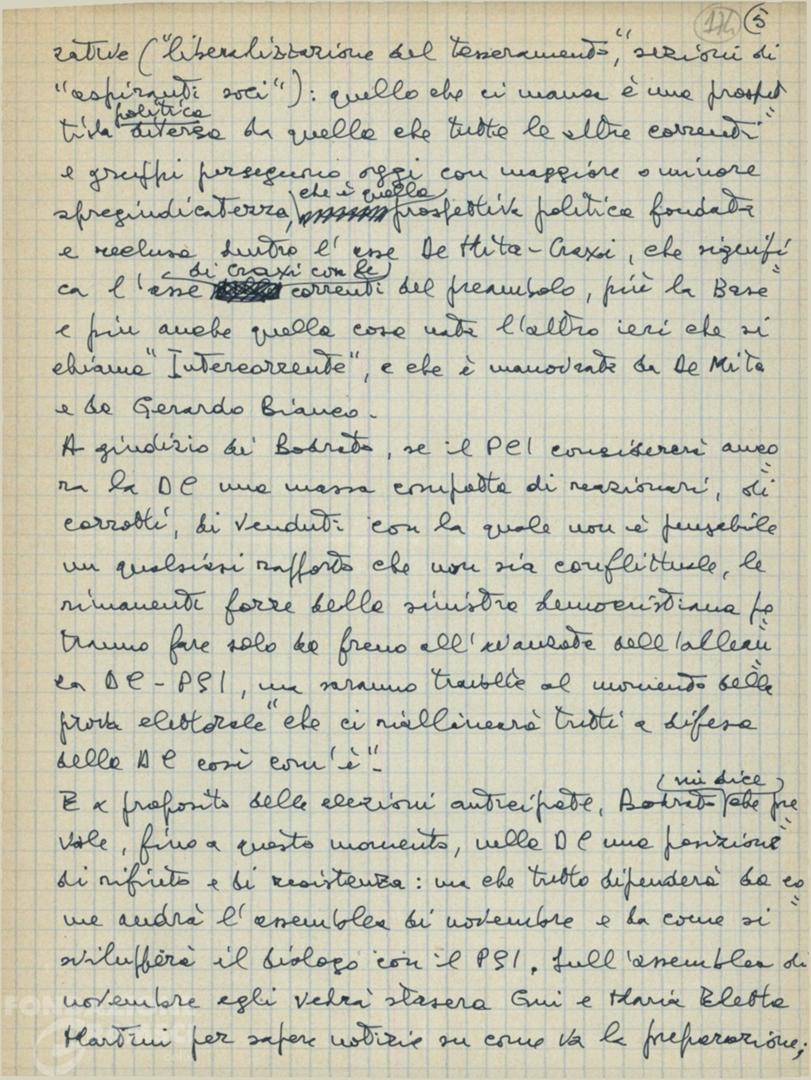 174 5
zative ("liberalizzazione del tesseramento", sezioni di
"aspiranti soci"): quello che ci manca è una prospet
politica
tiva diversa da quella che tutte le altre correnti
e gruppi perseguono oggi con maggiore o minore
che è quella
spregiudicatezza, prospettiva politica fondata
e reclusa dentro l'asse De Mita-Craxi, che signifi
di Craxi con le
ca l'asse correnti del preambolo, più la Base
e più anche quella cosa nata l'altro ieri che si
chiama "Intercorrente", e che è manovrata da De Mita
e da Gerardo Bianco.
A giudizio di Bodrato, se il PCI considererà anco
ra la DC una massa compatta di reazionari, di
corrotti, di venduti con la quale non è pensabile
un qualsiasi rapporto che non sia conflittuale, le
rimanenti forze della sinistra democristiana po
tranno fare solo da freno all'avanzata dell'allean
za DC-PSI, ma saranno travolte al momento della
prova elettorale "che ci riallineerà tutti a difesa
della DC così com'è".
mi dice
E a proposito delle elezioni anticipate, Bodrato che pre
vale, fino a questo momento, nella DC una posizione
di rifiuto e di resistenza: ma che tutto dipenderà da co
me andrà l'assemblea di novembre e da come si
svilupperà il dialogo con il PSI. Sull'assemblea di
novembre egli vedrà stasera Gui e Maria Eletta
Martini per sapere notizie su come va la preparazione;